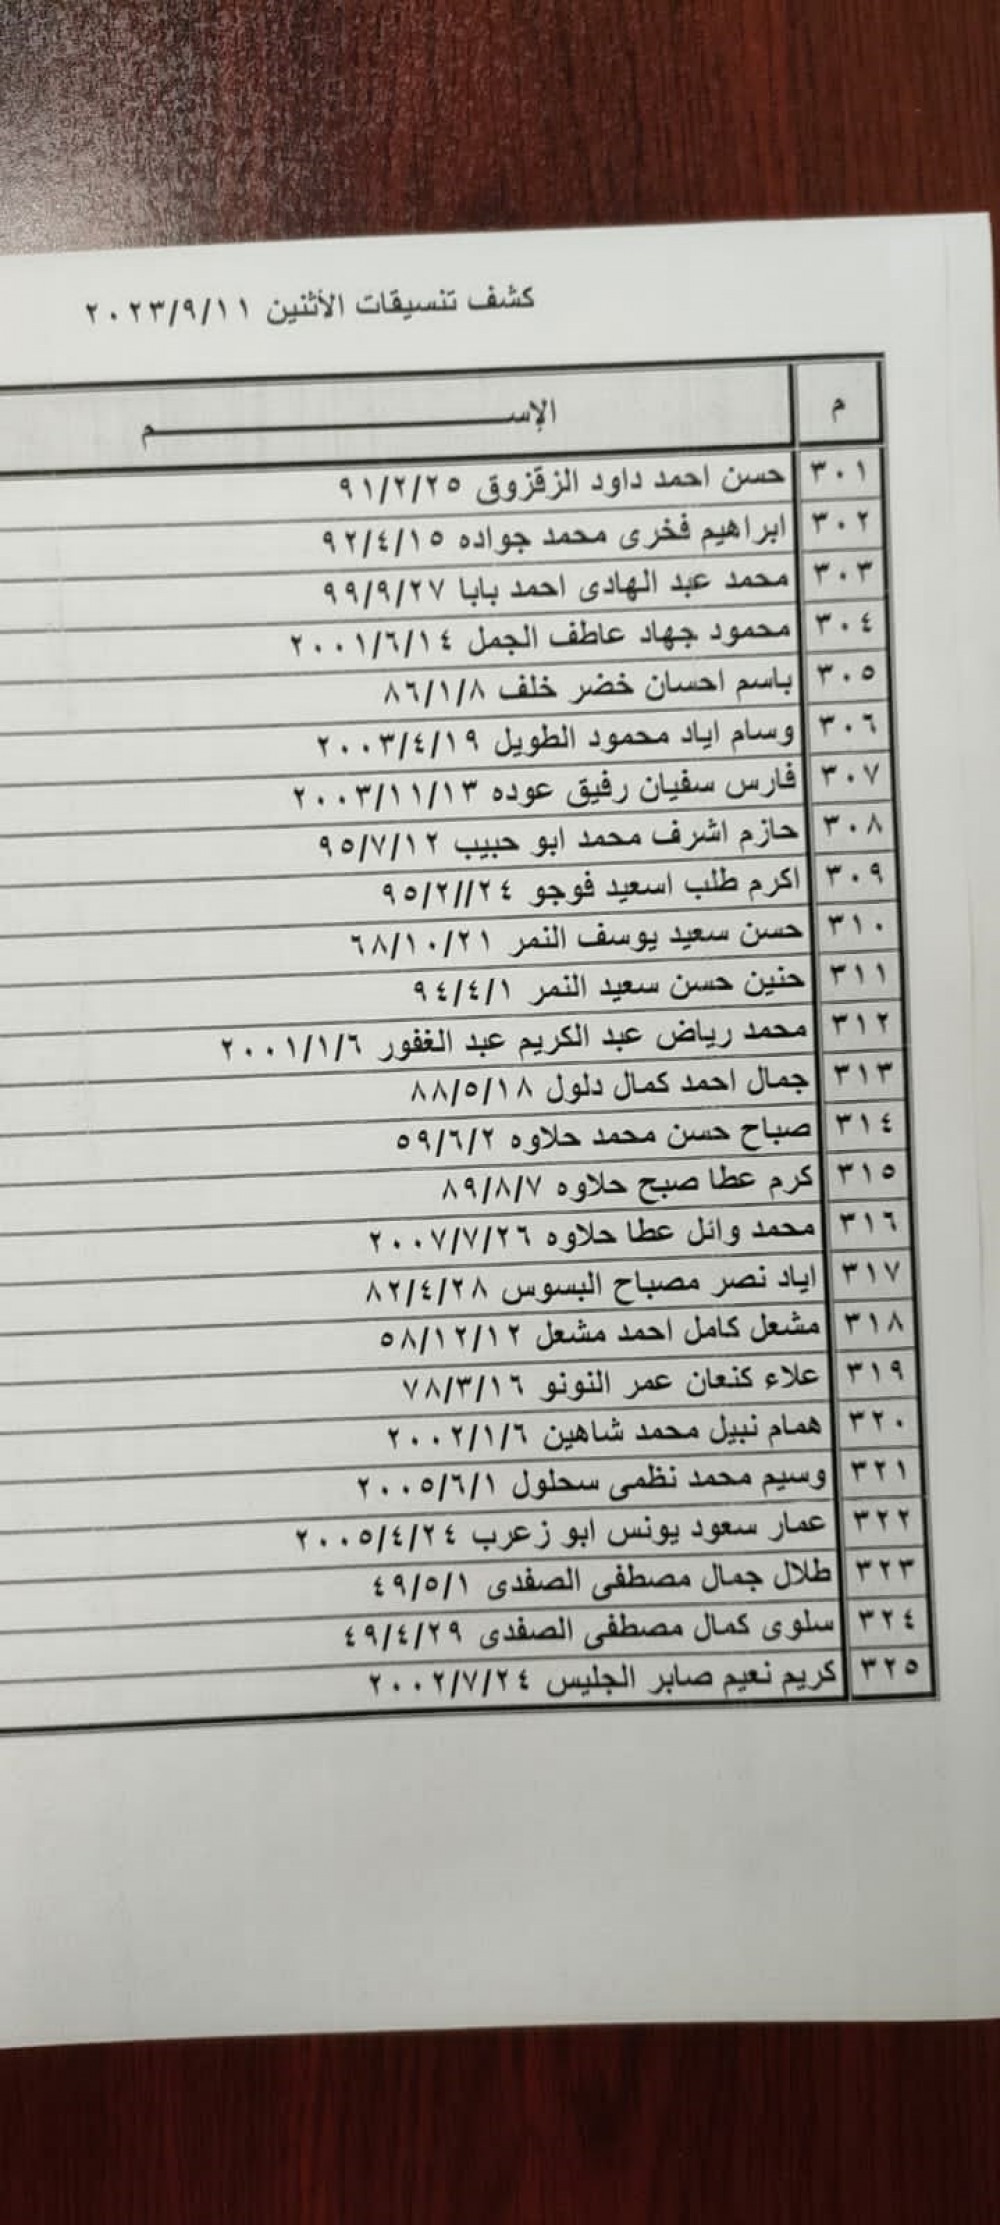 كشف تنسيقات الأثنين ٢٠٢٣/٩/١١
م الإســـــــــــــــم
٣٠١ حسن احمد داود الزقزوق ٩١/٢/٢٥
٣٠٢ ابراهيم فخرى محمد جواده ٩٢/٤/١٥
٣٠٣ محمد عبد الهادى احمد بابا ٩٩/٩/٢٧
٣٠٤ محمود جهاد عاطف الجمل ٢٠٠١/٦/١٤
٣٠٥ باسم احسان خضر خلف ٨٦/١/٨
٣٠٦ وسام اياد محمود الطويل ٢٠٠٣/٤/١٩
٣٠٧ فارس سفيان رفيق عوده ٢٠٠٣/١١/١٣
٣٠٨ حازم اشرف محمد ابو حبيب ٩٥/٧/١٢
٣٠٩ اكرم طلب اسعيد فوجو ٩٥/٢//٢٤
٣١٠ حسن سعيد يوسف النمر ٦٨/١٠/٢١
٣١١ حنين حسن سعيد النمر ٩٤/٤/١
٣١٢ محمد رياض عبد الكريم عبد الغفور ٢٠٠١/١/٦
٣١٣ جمال احمد كمال دلول ٨٨/٥/١٨
٣١٤ صباح حسن محمد حلاوه ٥٩/٦/٢
٣١٥ كرم عطا صبح حلاوه ٨٩/٨/٧
٣١٦ محمد وائل عطا حلاوه ٢٠٠٧/٧/٢٦
٣١٧ اياد نصر مصباح البسوس ٨٢/٤/٢٨
٣١٨ مشعل كامل احمد مشعل ٥٨/١٢/١٢
٣١٩ علاء كنعان عمر النونو ٧٨/٣/١٦
٣٢٠ همام نبيل محمد شاهين ٢٠٠٢/١/٦
٣٢١ وسيم محمد نظمى سحلول ٢٠٠٥/٦/١
٣٢٢ عمار سعود يونس ابو زعرب ٢٠٠٥/٤/٢٤
٣٢٣ طلال جمال مصطفى الصفدى ٤٩/٥/١
٣٢٤ سلوى كمال مصطفى الصفدى ٤٩/٤/٢٩
٣٢٥ كريم نعيم صابر الجليس ٢٠٠٢/٧/٢٤